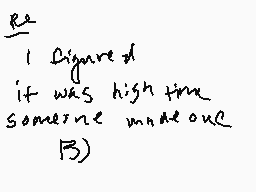 Re
I figured
it was high time
someone made one
B)